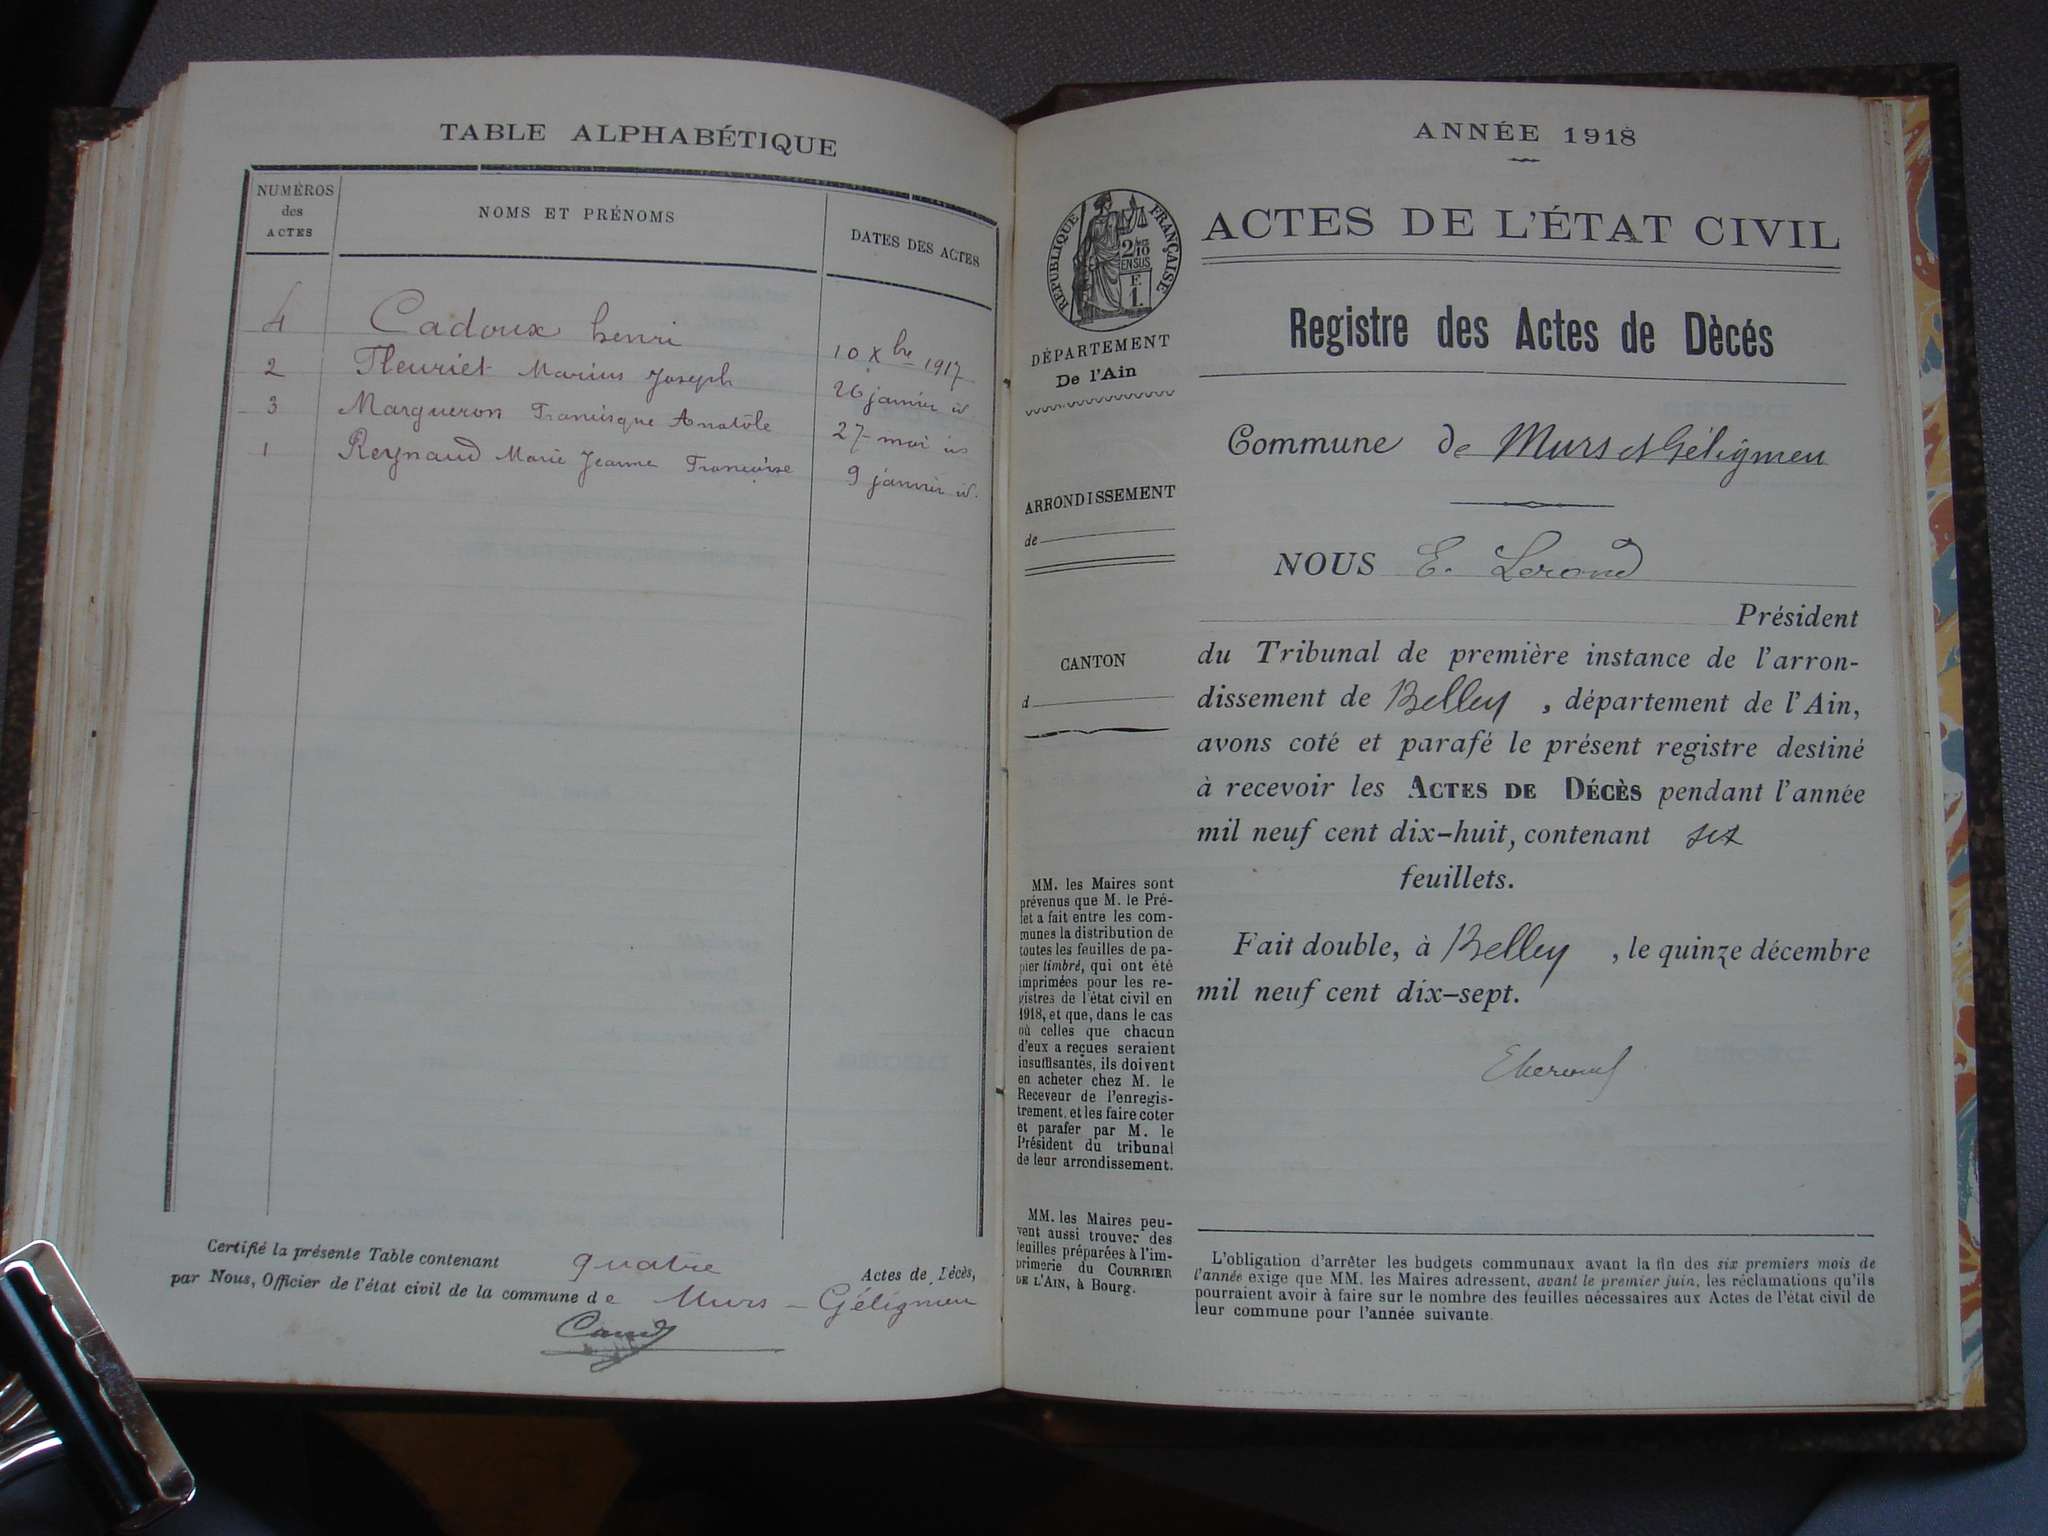 TABLE ALPHABÉTIQUE
NUMÉROS
des
ACTES
NOMS ET PRÉNOMS
DATES DES ACTES
4 Cadoux henri 10 Xbre 1917
2 Fleuriet Marius Joseph 26 janvier id
3 Margueron Francisque Anatole 27 mai id
1 Reynaud Marie Jeanne Françoise 9 janvier id.
Certifié la présente Table contenant quatre Actes de Décès,
par Nous, Officier de l'état civil de la commune de Murs-Géligneu
ANNÉE 1918
RÉPUBLIQUE FRANÇAISE
2/10
EN SUS
F
1.
ACTES DE L'ÉTAT CIVIL
DÉPARTEMENT
De l'Ain
ARRONDISSEMENT
de
CANTON
d
MM. les Maires sont
prévenus que M. le Pré-
fet a fait entre les com-
munes la distribution de
toutes les feuilles de pa-
pier timbré, qui ont été
imprimées pour les re-
gistres de l'état civil en
1918, et que, dans le cas
où celles que chacun
d'eux a reçues seraient
insuffisantes, ils doivent
en acheter chez M. le
Receveur de l'enregis-
trement, et les faire coter
et parafer par M. le
Président du tribunal
de leur arrondissement.
MM. les Maires peu-
vent aussi trouver des
feuilles préparées à l'im-
primerie du COURRIER
DE L'AIN, à Bourg.
Registre des Actes de Dècés
Commune de Murs et Géligneu
NOUS E.
Président
du Tribunal de première instance de l'arron-
dissement de Belley, département de l'Ain,
avons coté et parafé le présent registre destiné
à recevoir les ACTES DE DÉCÈS pendant l'année
mil neuf cent dix-huit, contenant six
feuillets.
Fait double, à Belley, le quinze décembre
mil neuf cent dix-sept.
L'obligation d'arrêter les budgets communaux avant la fin des six premiers mois de
l'année exige que MM. les Maires adressent, avant le premier juin, les réclamations qu'ils
pourraient avoir à faire sur le nombre des feuilles nécessaires aux Actes de l'état civil de
leur commune pour l'année suivante.